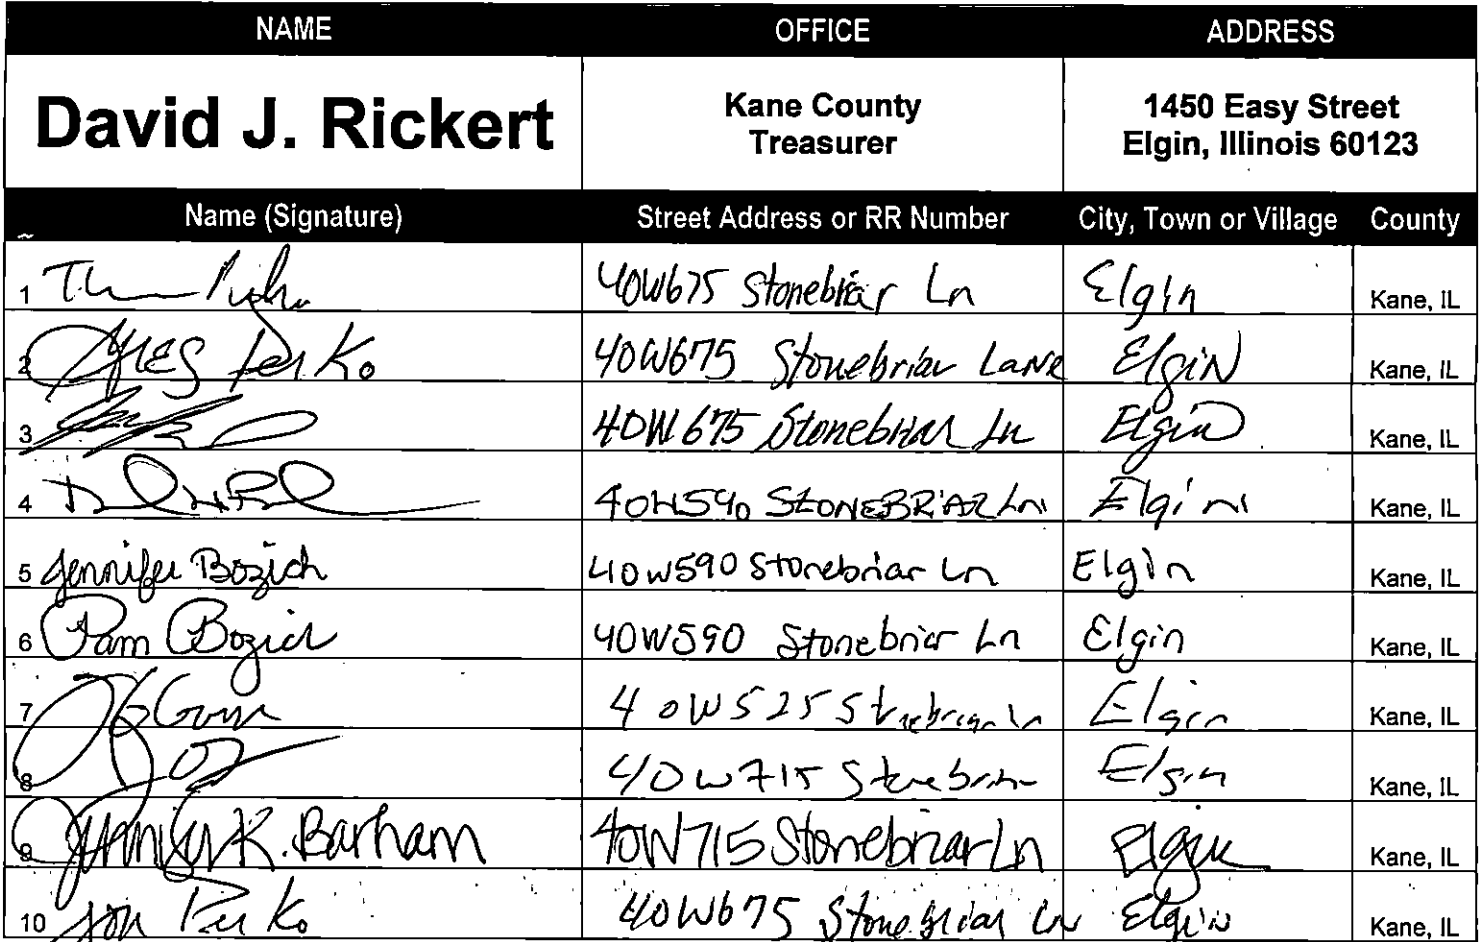 NAME OFFICE ADDRESS
David J. Rickert Kane County Treasurer 1450 Easy Street Elgin, Illinois 60123
Name (Signature) Street Address or RR Number City, Town or Village County
1 40W675 Stonebriar Ln Elgin Kane, IL
2 Greg Perko 40W675 Stonebriar Lane Elgin Kane, IL
3 40W675 Stonebriar Ln Elgin Kane, IL
4 40W590 STONEBRIAR Ln Elgin Kane, IL
5 Jennifer Bozich 40W590 Stonebriar Ln Elgin Kane, IL
6 Pam Bozich 40W590 Stonebriar Ln Elgin Kane, IL
7 40W525 Stonebriar Ln Elgin Kane, IL
8 40W715 Stonebriar Elgin Kane, IL
9 K. Barham 40W715 Stonebriar Ln Elgin Kane, IL
10 Jon Perko 40W675 Stonebriar Ln Elgin Kane, IL